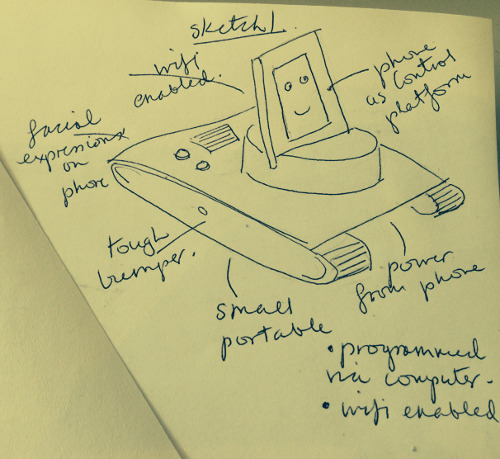 sketch 1.
wifi
enabled.
phone
as control
platform
facial
expressions
on
phone
tough
bumper.
small
portable
power
from phone
• programmed
via computer.
• wifi enabled